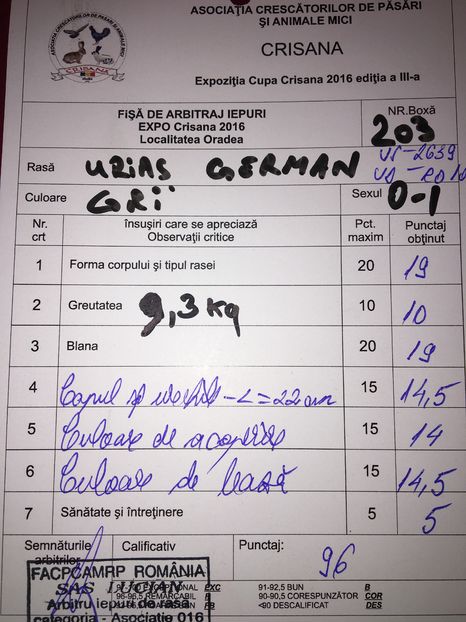 ASOCIAȚIA CRESCĂTORILOR DE PĂSĂRI
ȘI ANIMALE MICI
CRISANA
Expoziția Cupa Crisana 2016 ediția a III-a
ASOCIAȚIA CRESCĂTORILOR DE PĂSĂRI ȘI ANIMALE MICI
CRISANA
FIȘĂ DE ARBITRAJ IEPURI
EXPO Crisana 2016
Localitatea Oradea
NR.Boxă
203
Rasă URIAS GERMAN
Culoare GRI
Sexul 0-1
Nr. crt
însușiri care se apreciază
Observații critice
Pct. maxim
Punctaj obținut
1 Forma corpului și tipul rasei 20 19
2 Greutatea 9,3 kg 10 10
3 Blana 20 19
4 Capul și urechile - L = 22 cm 15 14,5
5 Culoare de acoperire 15 14
6 Culoare de bază 15 14,5
7 Sănătate și întreținere 5 5
Semnăturile arbitrilor
Calificativ
Punctaj: 96
FACPCAMRP ROMÂNIA
SAS LUCIAN
Arbitru iepuri de rasă
categoria - Asociație 016
EXC
91-92,5 BUN B
90-90,5 CORESPUNZĂTOR COR
<90 DESCALIFICAT DES